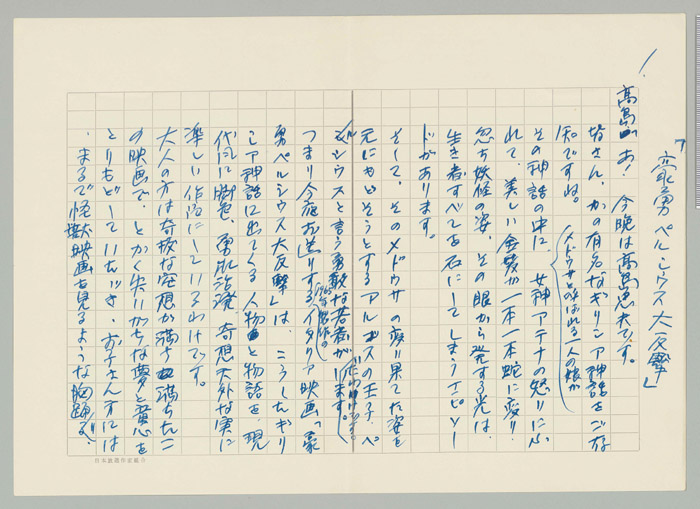 「豪勇ペルシウス大反撃」
高島 あ! 今晩は高島忠夫です。
皆さん、かの有名なギリシア神話をご存
知ですね。
その神話の中に 女神アテナの怒りにふ
メドウサとよばれる一人の娘が
れて、美しい金髪が一本一本蛇に変り
忽ち妖怪の姿、その眼から発する光は、
生き者すべてを石にしてしまうエピソー
ドがあります。
そして、そのメドウサの変り果てた姿を
元にもどそうとするアルゴスの王子、ペ
ルシウスと言う勇敢な若者がします。
つまり今夜お送りするイタリア映画「豪
勇ペルシウス大反撃」は、こうしたギリ
シア神話に出てくる人物と物語を、現
代風に脚色、勇肌活溌、奇想天外な実に
楽しい作品にしているわけです。
大人の方は奇抜な発想が満ち満ちたこ
の映画で、とかく失いがちな夢と童心を
とりもどしていただき、お子さんずには
、まるで怪獣映画を見るような胸躍る、
日本放送作家組合